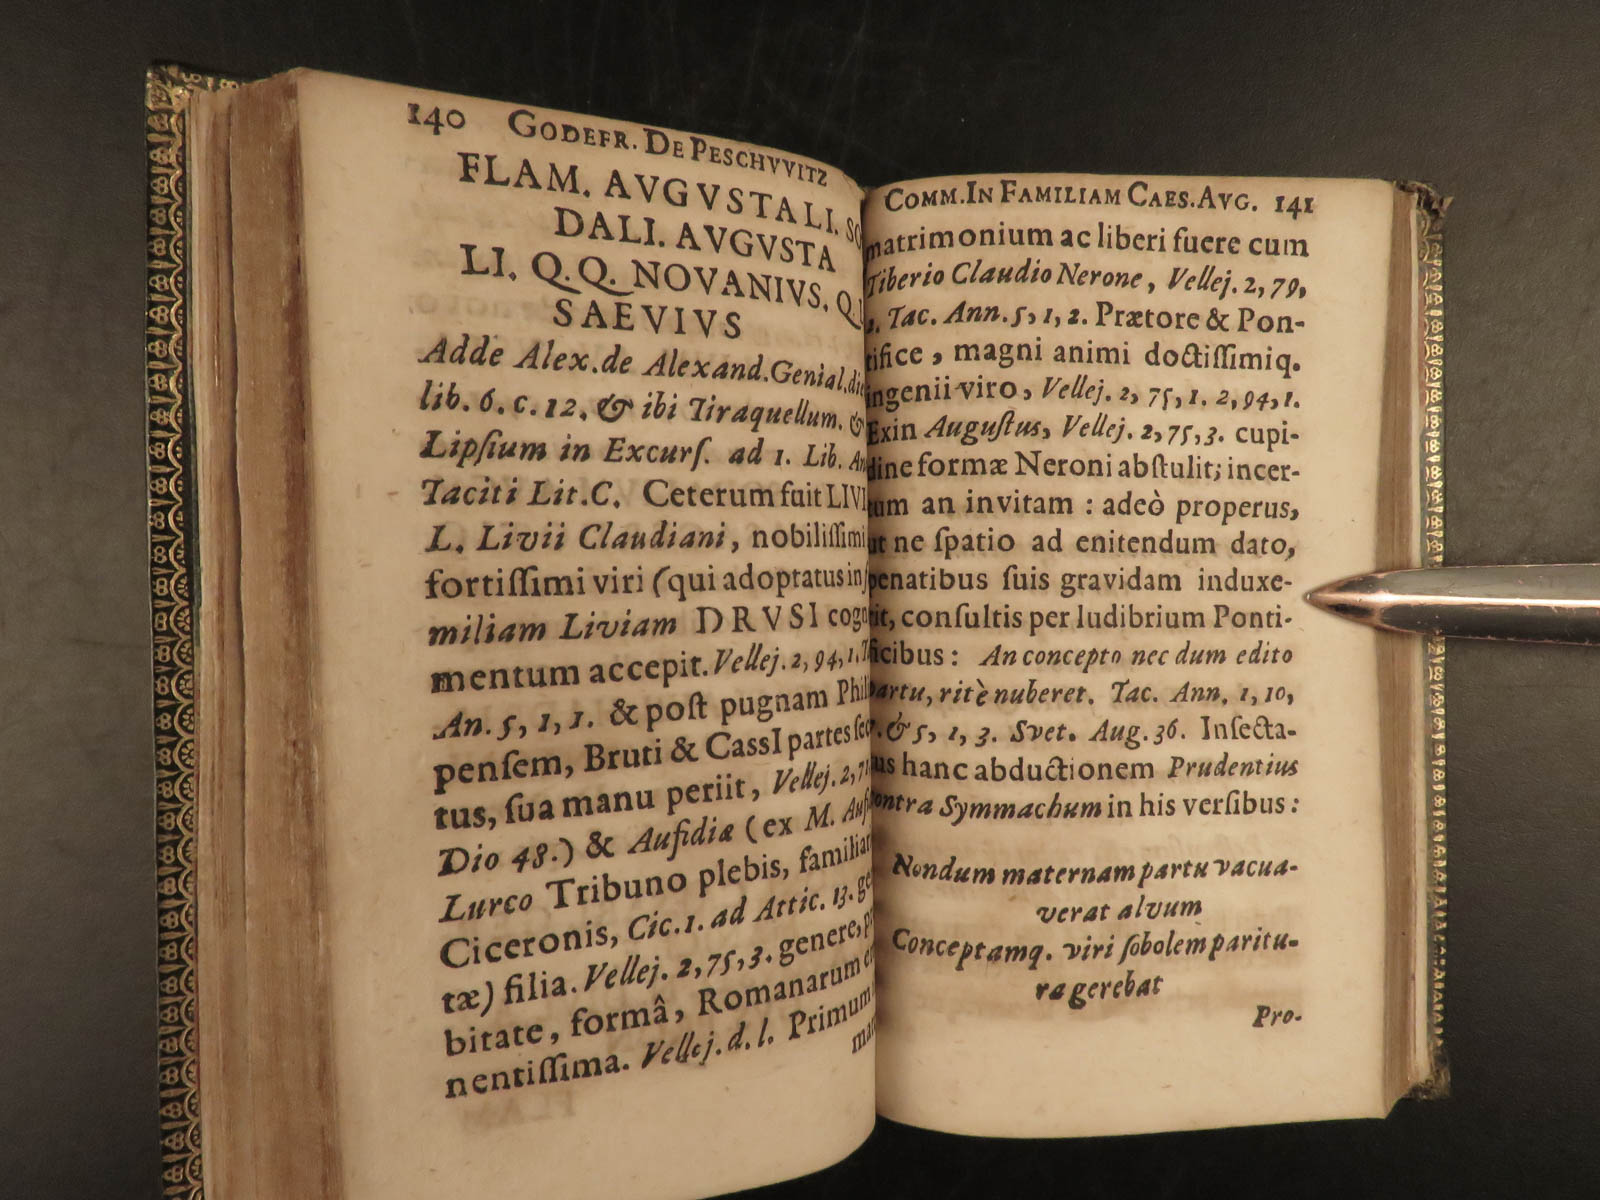 140 GODEFR. DE PESCHVVITZ
FLAM. AVGVSTALI. SO
DALI. AVGVSTA
LI. Q.Q. NOVANIVS. Q.
SAEVIVS
Adde Alex. de Alexand. Genial. die
lib. 6. c. 12. & ibi Tiraquellum. &
Lipſium in Excurſ. ad 1. Lib. An
Taciti Lit. C. Ceterum fuit LIVI
L. Livii Claudiani, nobiliſſimi
fortiſſimi viri (qui adoptatus in
miliam Liviam DRVSI cogn
mentum accepit. Vellej. 2, 94, 1.
An. 5, 1, 1. & poſt pugnam Phil
penſem, Bruti & CassI partes ſec
tus, ſua manu periit, Vellej. 2, 71
Dio 48.) & Aufidiæ (ex M. Auf
Lurco Tribuno plebis, familiar
Ciceronis, Cic. 1. ad Attic. 13. ge
tæ) filia. Vellej. 2, 75, 3. genere, pr
bitate, formâ, Romanarum
nentiſſima. Vellej. d. l. Primum
COMM. IN FAMILIAM CAES. AVG. 141
matrimonium ac liberi fuere cum
Tiberio Claudio Nerone, Vellej. 2, 79,
Tac. Ann. 5, 1, 2. Prætore & Pon-
tifice, magni animi doctiſſimiq.
ingenii viro, Vellej. 2, 75, 1. 2, 94, 1.
Exin Auguſtus, Vellej. 2, 75, 3. cupi-
dine formæ Neroni abſtulit; incer-
tum an invitam : adeò properus,
ut ne ſpatio ad enitendum dato,
penatibus ſuis gravidam induxe-
rit, conſultis per ludibrium Ponti-
ficibus : An concepto nec dum edito
partu, ritè nuberet. Tac. Ann. 1, 10,
& 5, 1, 3. Svet. Aug. 36. Inſecta-
us hanc abductionem Prudentius
contra Symmachum in his verſibus :
Nondum maternam partu vacua-
verat alvum
Conceptamq. viri ſobolem paritu-
ra gerebat
Pro-